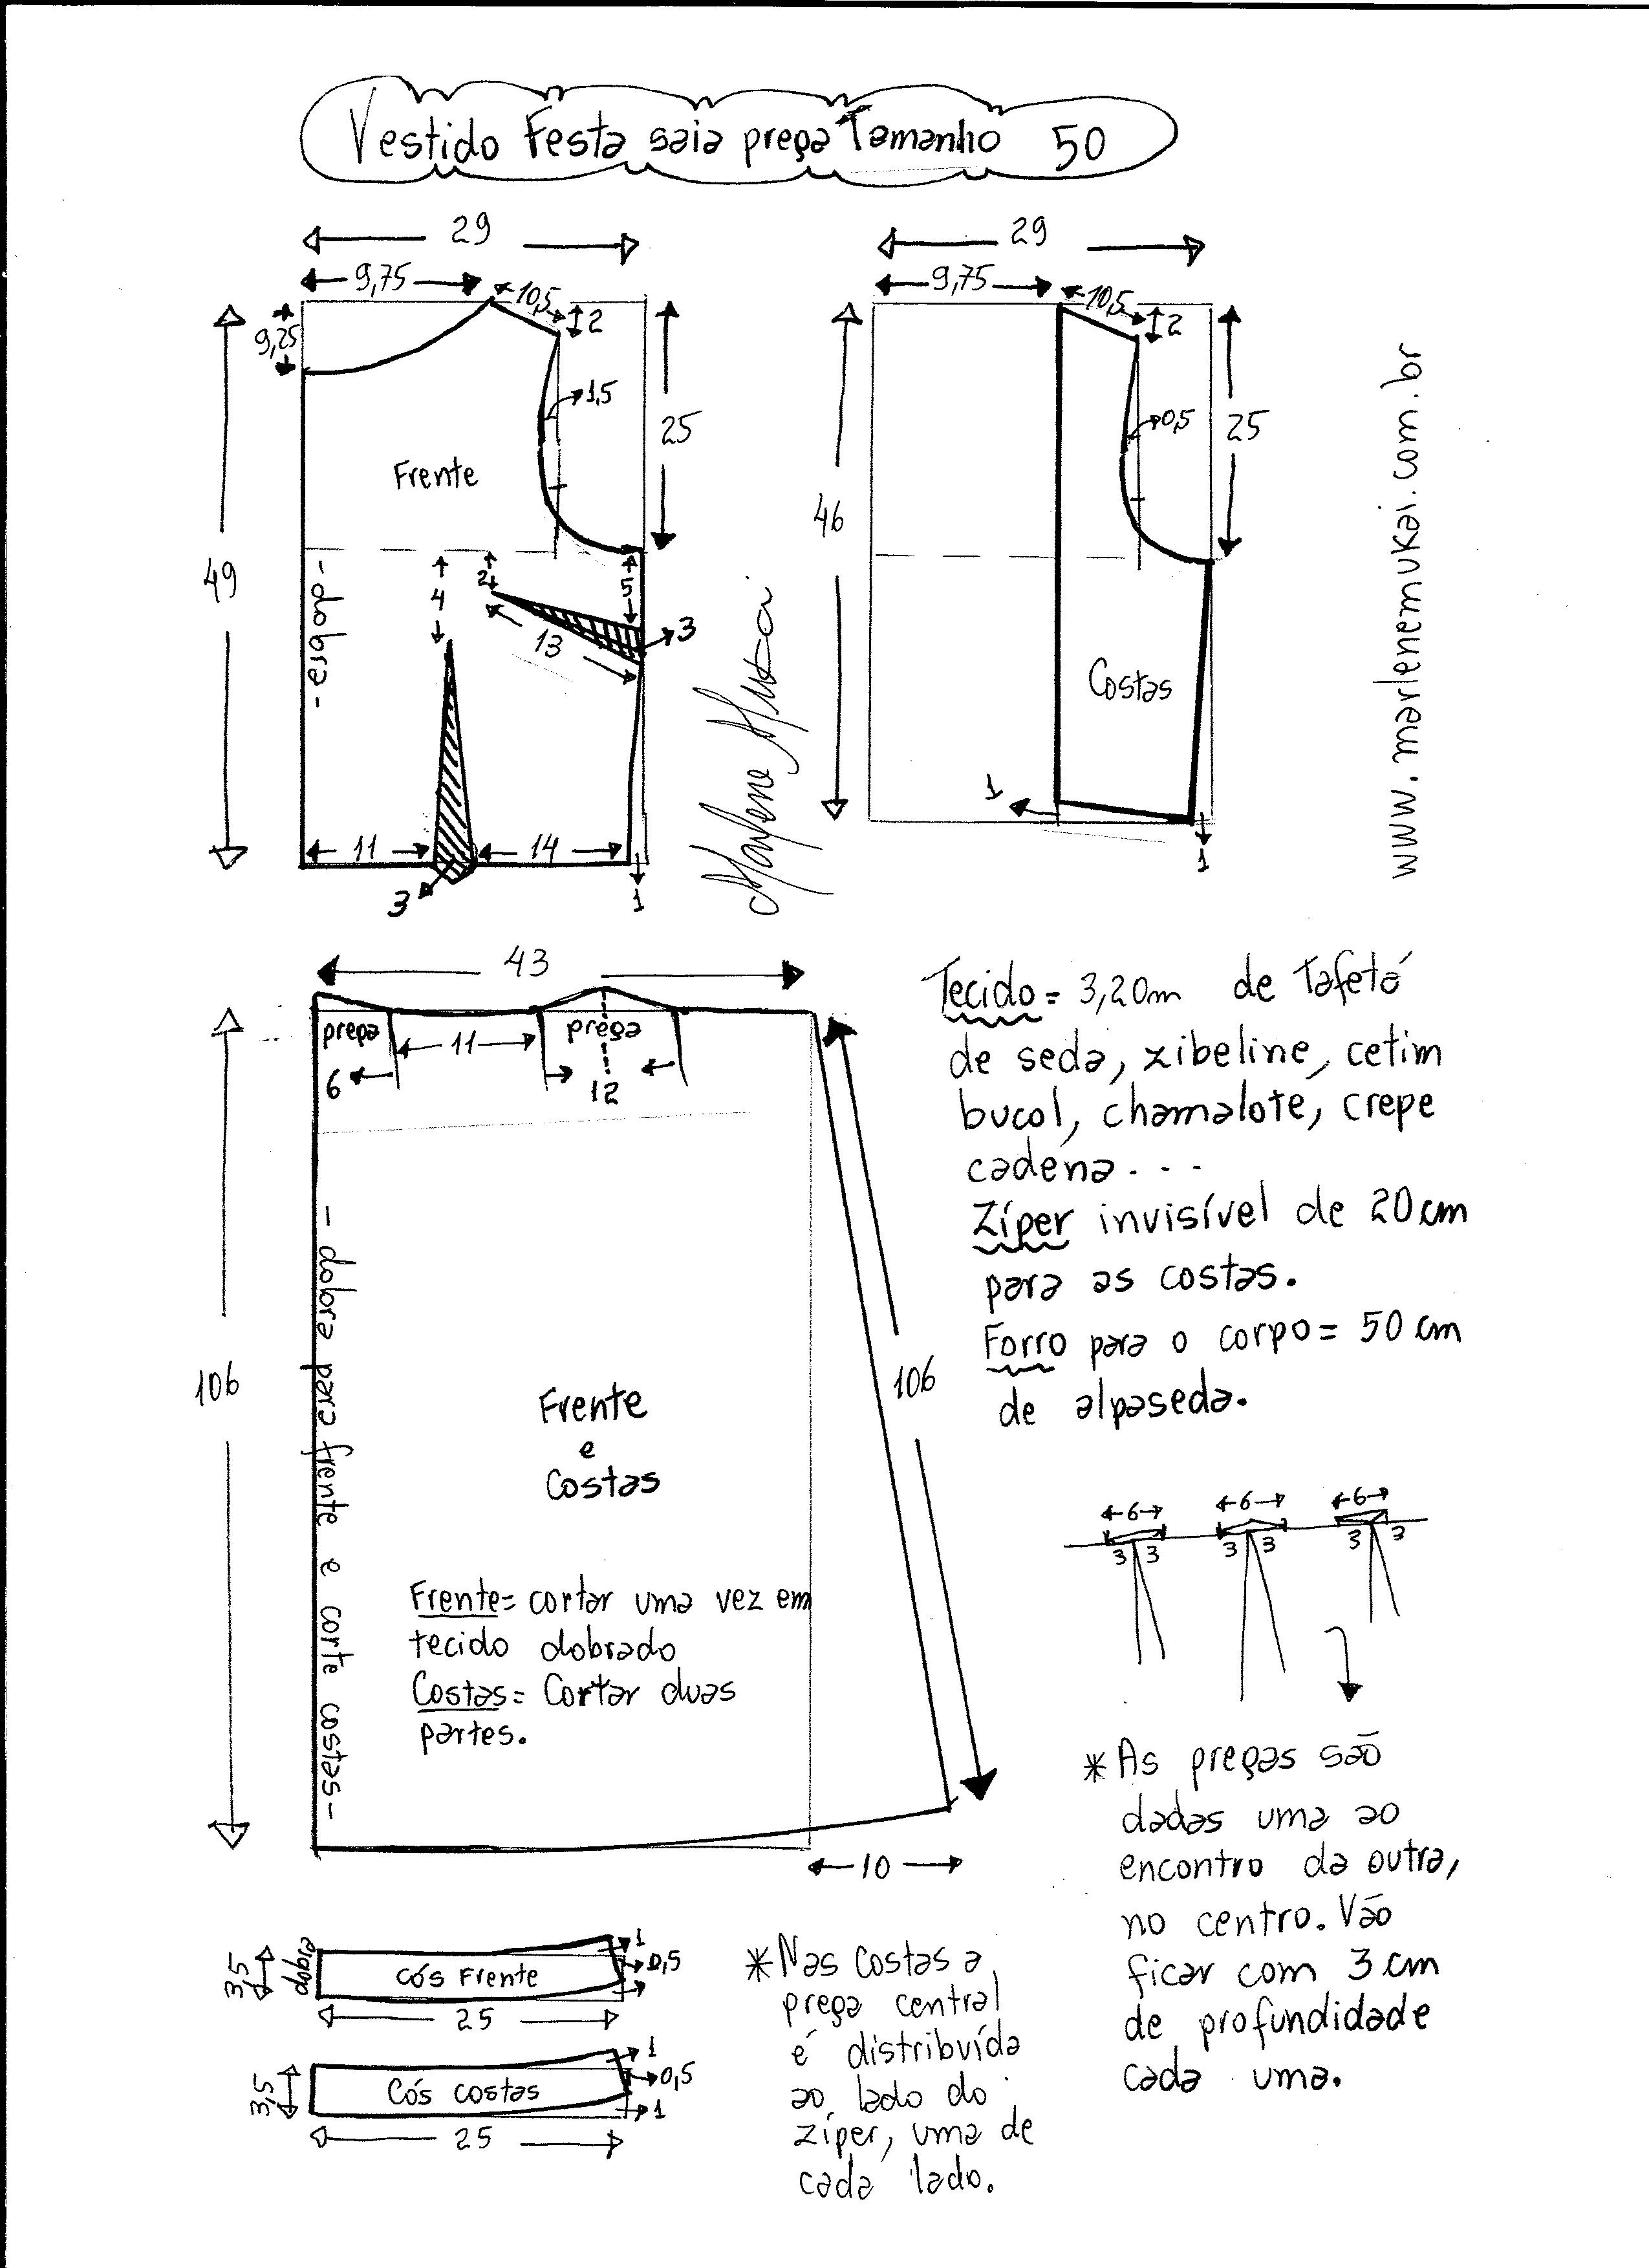 Vestido Festa saia prega Tamanho 50
29
9,75
10,5
2
9,25
1,5
25
Frente
49
- dobra -
4
2
5
3
13
11
14
3
1
Marlene Mukai
29
9,75
10,5
2
0,5
25
46
Costas
1
1
www.marlenemukai.com.br
43
prega
11
prega
6
12
106
106
- dobra para frente e corte costas -
Frente
e
Costas
Frente = cortar uma vez em
tecido dobrado
Costas = Cortar duas
partes.
10
Tecido = 3,20m de Tafetá
de seda, zibeline, cetim
bucol, chamalote, crepe
cadena...
Zíper invisível de 20cm
para as costas.
Forro para o corpo = 50 cm
de alpaseda.
6
6
6
3 3
3 3
3 3
*As pregas são
dadas uma ao
encontro da outra,
no centro. Vão
ficar com 3 cm
de profundidade
cada uma.
3,5
dobra
Cós Frente
1
0,5
25
3,5
Cós costas
1
0,5
1
25
*Nas costas a
prega central
é distribuída
ao lado do
zíper, uma de
cada lado.